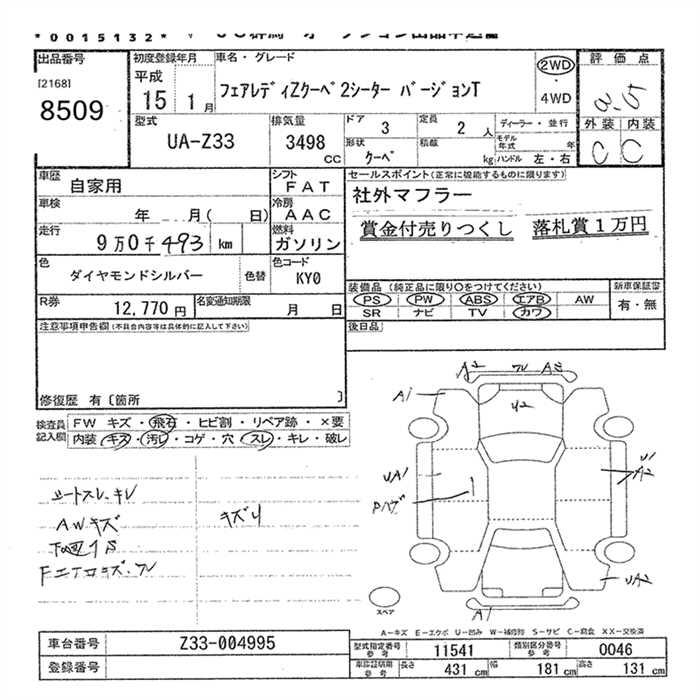 *0015132*
出品番号 初度登録年月 車名・グレード 2WD 評価点
[2168] 平成 フェアレディZクーペ 2シーター バージョンT ・
8509 15年 1月 4WD 3.5
型式 排気量 ドア 3 定員 2人 ディーラー・並行 外装 内装
UA-Z33 3498cc 形状 クーペ 積載 kg モデル年式 年 ハンドル 左・右 C C
車歴 自家用 シフト FAT セールスポイント(正常に機能するものに限ります)
車検 年 月( 日) 冷房 AAC 社外マフラー
走行 9万0千493km 燃料 ガソリン 賞金付売りつくし 落札賞1万円
色 ダイヤモンドシルバー 色替 色コード KY0
装備品(純正品に限り○をつけてください) 新車保証書
PS PW ABS エアB AW 有・無
R券 12,770円 名変通知期限 月 日 SR ナビ TV カワ
注意事項申告欄(不具合内容等は具体的に記入して下さい) 後日品
修復歴 有〔箇所 〕
検査員記入欄 FW キズ・飛石・ヒビ割・リペア跡・×要
内装 キズ・汚レ・コゲ・穴・スレ・キレ・破レ
シートスレ、キレ
AWキズ キズリ
A2 A2
A1 U2
UA1 U1
A2
Pハゲ
UA2
A1
スペア
A-キズ E-エクボ U-凹み W-補修跡 S-サビ C-腐食 XX-交換済
車台番号 Z33-004995 型式指定番号 参考 11541 類別区分番号 参考 0046
登録番号 車庫証明用 参考 長さ 431cm 幅 181cm 高さ 131cm